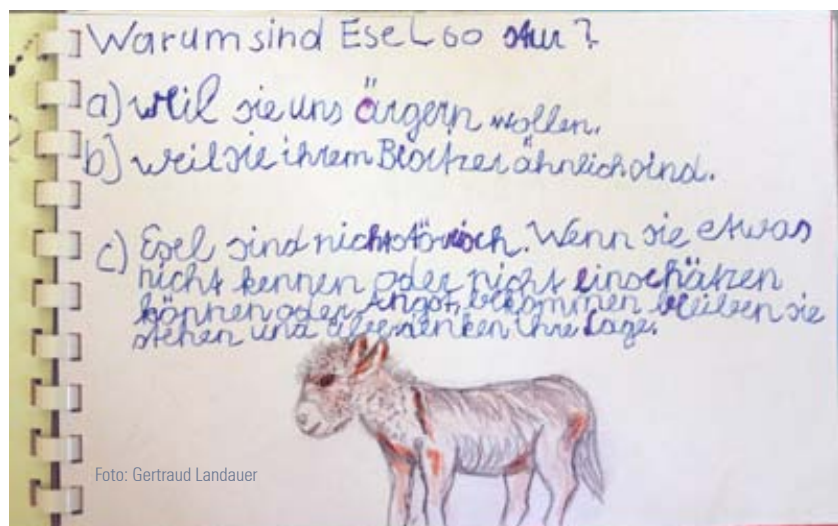 Warum sind Esel so stur?
a) weil sie uns ärgern wollen.
b) weil sie ihrem Besitzer ähnlich sind.
c) Esel sind nicht störrisch. Wenn sie etwas
nicht kennen oder nicht einschätzen
können oder Angst bekommen bleiben sie
stehen und überdenken ihre Lage.
Foto: Gertraud Landauer